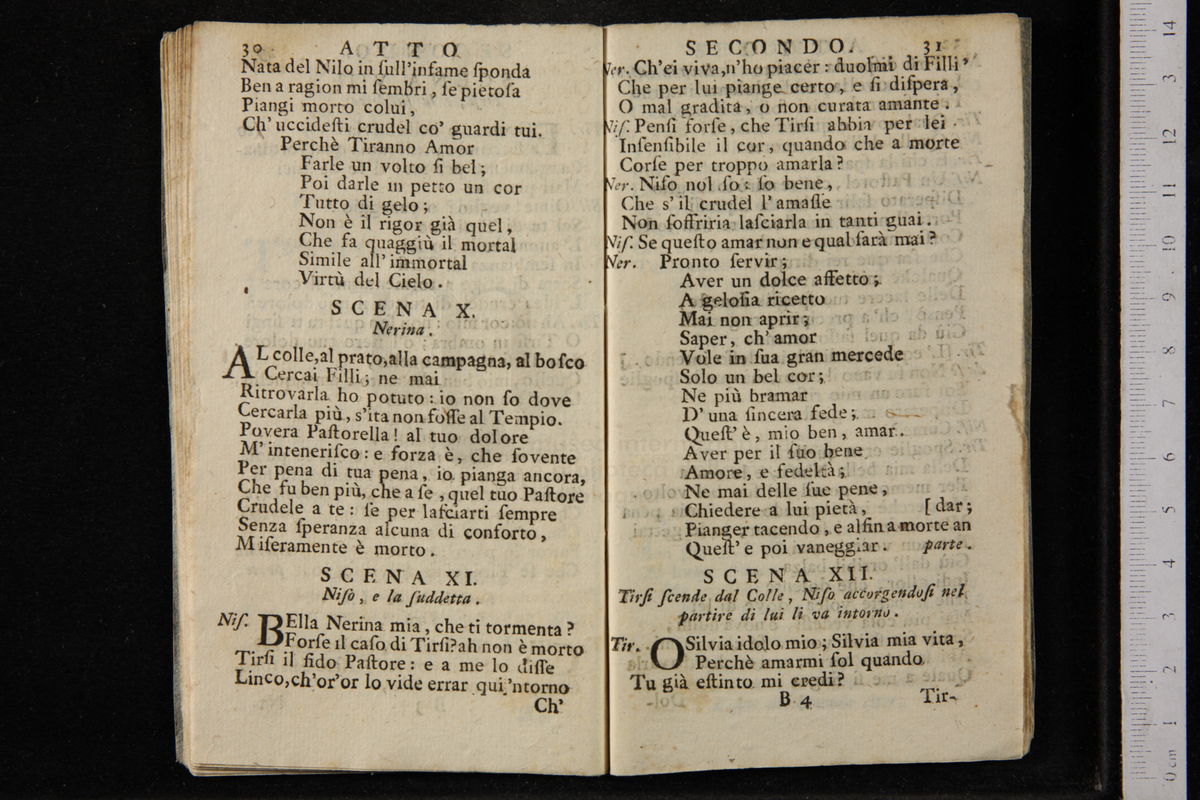 30 ATTO
Nata del Nilo in ſull'infame ſponda
Ben a ragion mi ſembri, ſe pietoſa
Piangi morto colui,
Ch'uccideſti crudel co' guardi tui.
Perchè Tiranno Amor
Farle un volto ſi bel;
Poi darle in petto un cor
Tutto di gelo;
Non è il rigor già quel,
Che fa quaggiù il mortal
Simile all'immortal
Virtù del Cielo.
SCENA X.
Nerina.
AL colle, al prato, alla campagna, al boſco
Cercai Filli; ne mai
Ritrovarla ho potuto: io non ſo dove
Cercarla più, s'ita non foſſe al Tempio.
Povera Paſtorella! al tuo dolore
M'inteneriſco: e forza è, che ſovente
Per pena di tua pena, io pianga ancora,
Che fu ben più, che a ſe, quel tuo Paſtore
Crudele a te: ſe per laſciarti ſempre
Senza ſperanza alcuna di conforto,
Miſeramente è morto.
SCENA XI.
Niſo, e la ſuddetta.
Niſ. BElla Nerina mia, che ti tormenta?
Forſe il caſo di Tirſi? ah non è morto
Tirſi il fido Paſtore: e a me lo diſſe
Linco, ch'or'or lo vide errar qui 'ntorno
Ch'
SECONDO. 31
Ner. Ch'ei viva, n'ho piacer: duolmi di Filli'
Che per lui piange certo, e ſi diſpera,
O mal gradita, o non curata amante.
Niſ. Penſi forſe, che Tirſi abbia per lei
Inſenſibile il cor, quando che a morte
Corſe per troppo amarla?
Ner. Niſo nol ſo: ſo bene,
Che s'il crudel l'amaſſe
Non ſoffriria laſciarla in tanti guai.
Niſ. Se queſto amar non e qual ſarà mai?
Ner. Pronto ſervir;
Aver un dolce affetto;
A geloſia ricetto
Mai non aprir;
Saper, ch'amor
Vole in ſua gran mercede
Solo un bel cor;
Ne più bramar
D'una ſincera fede;
Queſt'è, mio ben, amar.
Aver per il ſuo bene
Amore, e fedeltà;
Ne mai delle ſue pene,
Chiedere a lui pietà, [dar;
Pianger tacendo, e alfin a morte an
Queſt'e poi vaneggiar. parte.
SCENA XII.
Tirſi ſcende dal Colle, Niſo accorgendoſi nel
partire di lui li va intorno.
Tir. O Silvia idolo mio; Silvia mia vita,
Perchè amarmi ſol quando
Tu già eſtinto mi credi?
B 4 Tir-
0 cm 1 2 3 4 5 6 7 8 9 10 11 12 3 14